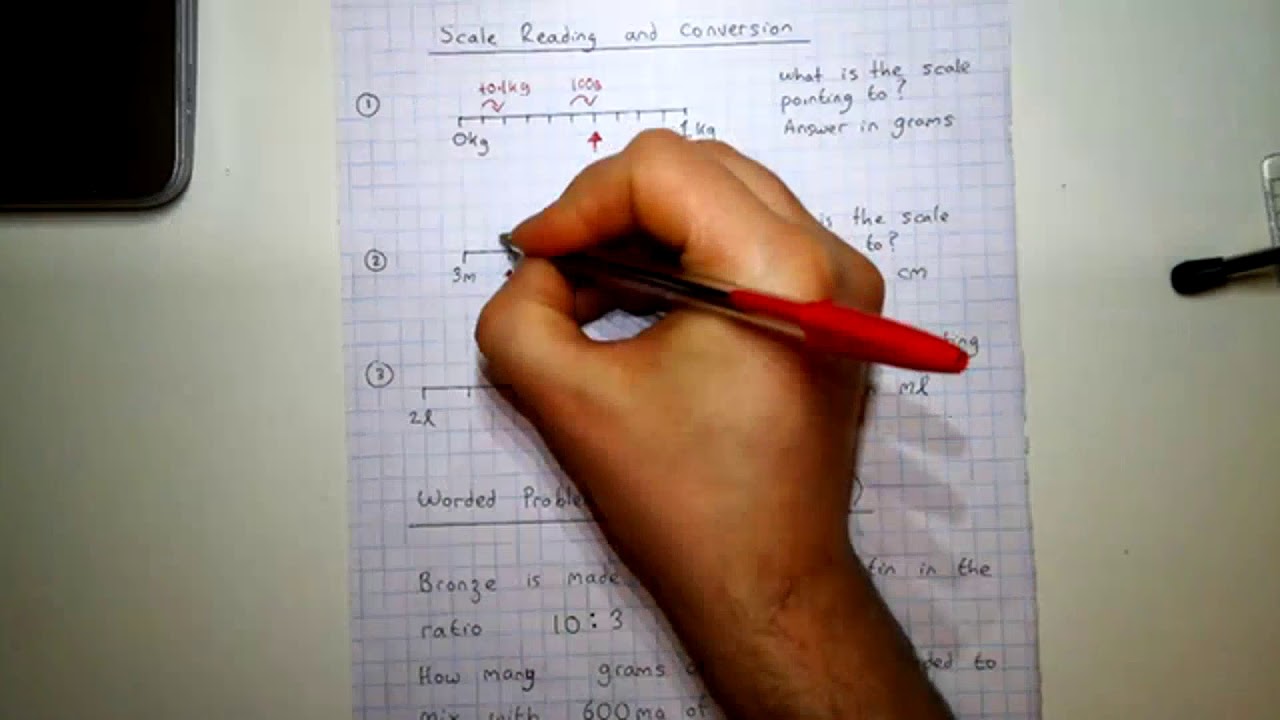 Scale Reading and Conversion
1
+0.1kg 100g
0kg 1kg
what is the scale
pointing to?
Answer in grams
2
3m
is the scale
to?
cm
3
2l
ml
Worded
Bronze is made tin in the
ratio 10:3
How many grams to
mix with 600mg of